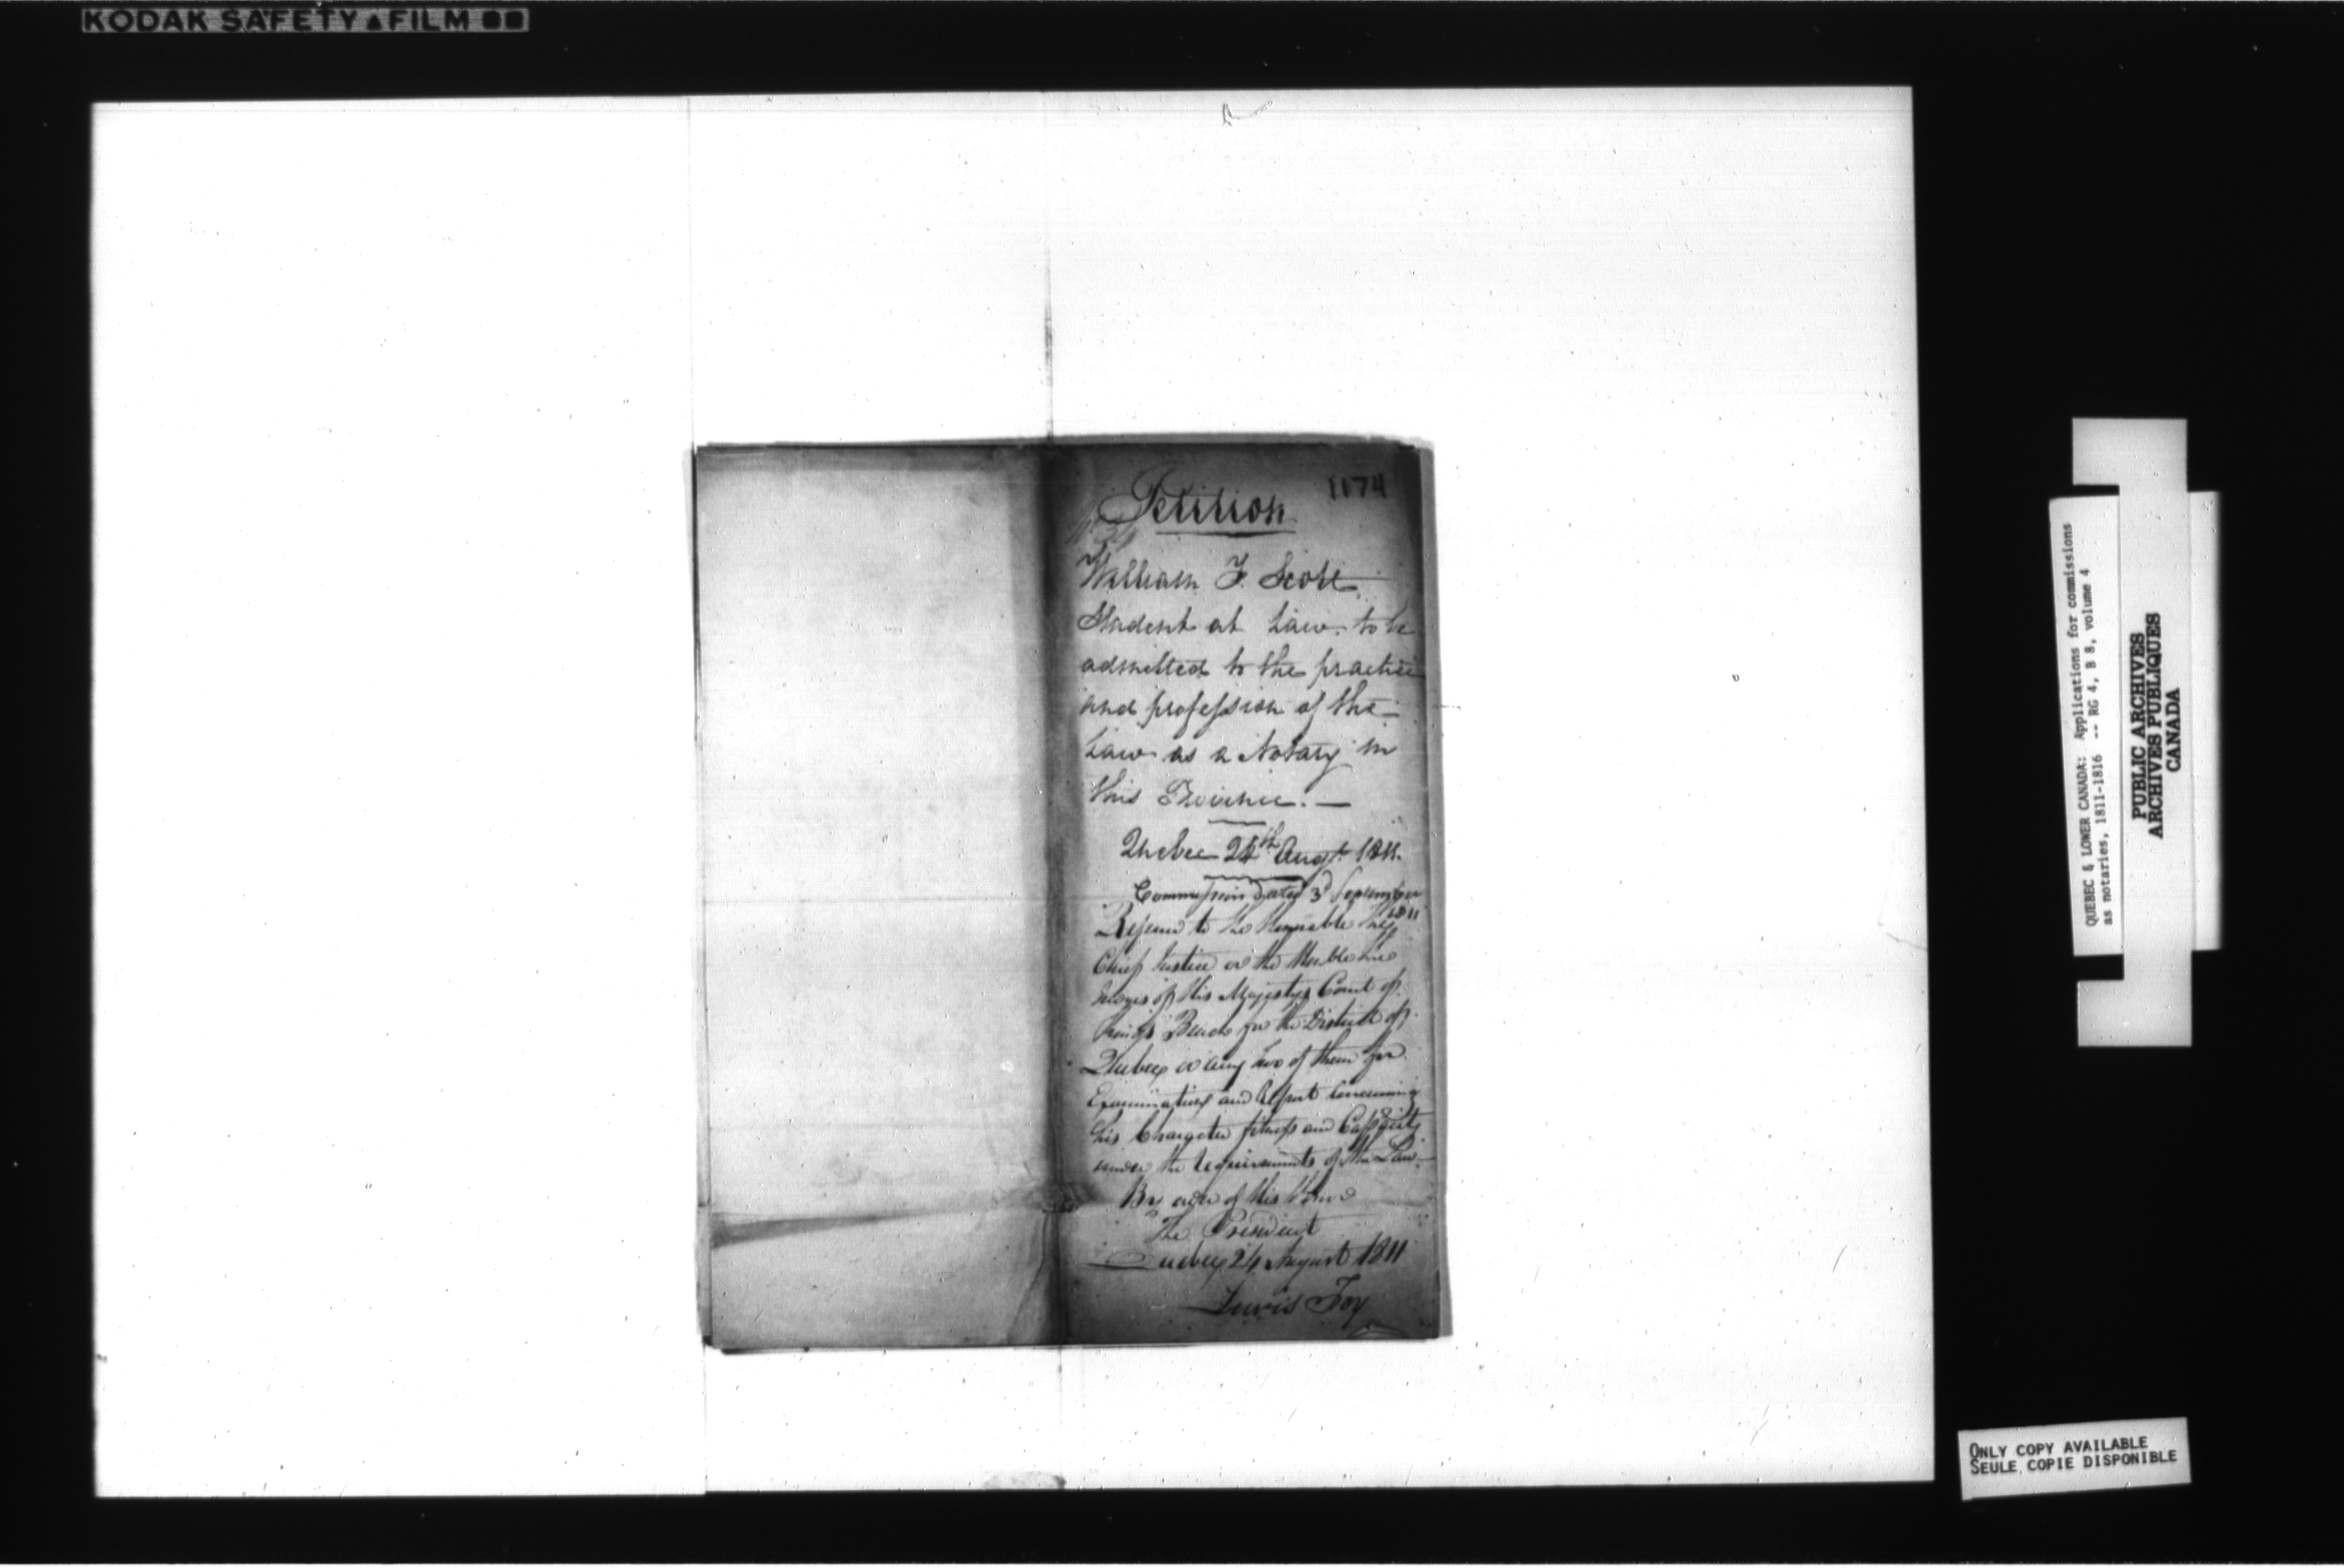 KODAK SAFETY FILM
1174
Petition
William F. Scott
Student at Law, to be
admitted to the practice
and profession of the
Law as a Notary in
this Province. —
Quebec 24th Augt. 1811.
Commission dated 3d September
1811
Referred to the Honorable the
Chief Justice or the Honble the
Judges of His Majestys Court of
Kings Bench for the District of
Quebec or any two of them for
Examination and Report concerning
his Character fitness and Capacity
under the requirements of the Law
By order of His Honor
The President
Quebec 24 August 1811
Lewis Foy
QUEBEC & LOWER CANADA: Applications for commissions
as notaries, 1811-1816 -- RG 4, B 8, volume 4
PUBLIC ARCHIVES
ARCHIVES PUBLIQUES
CANADA
ONLY COPY AVAILABLE
SEULE COPIE DISPONIBLE